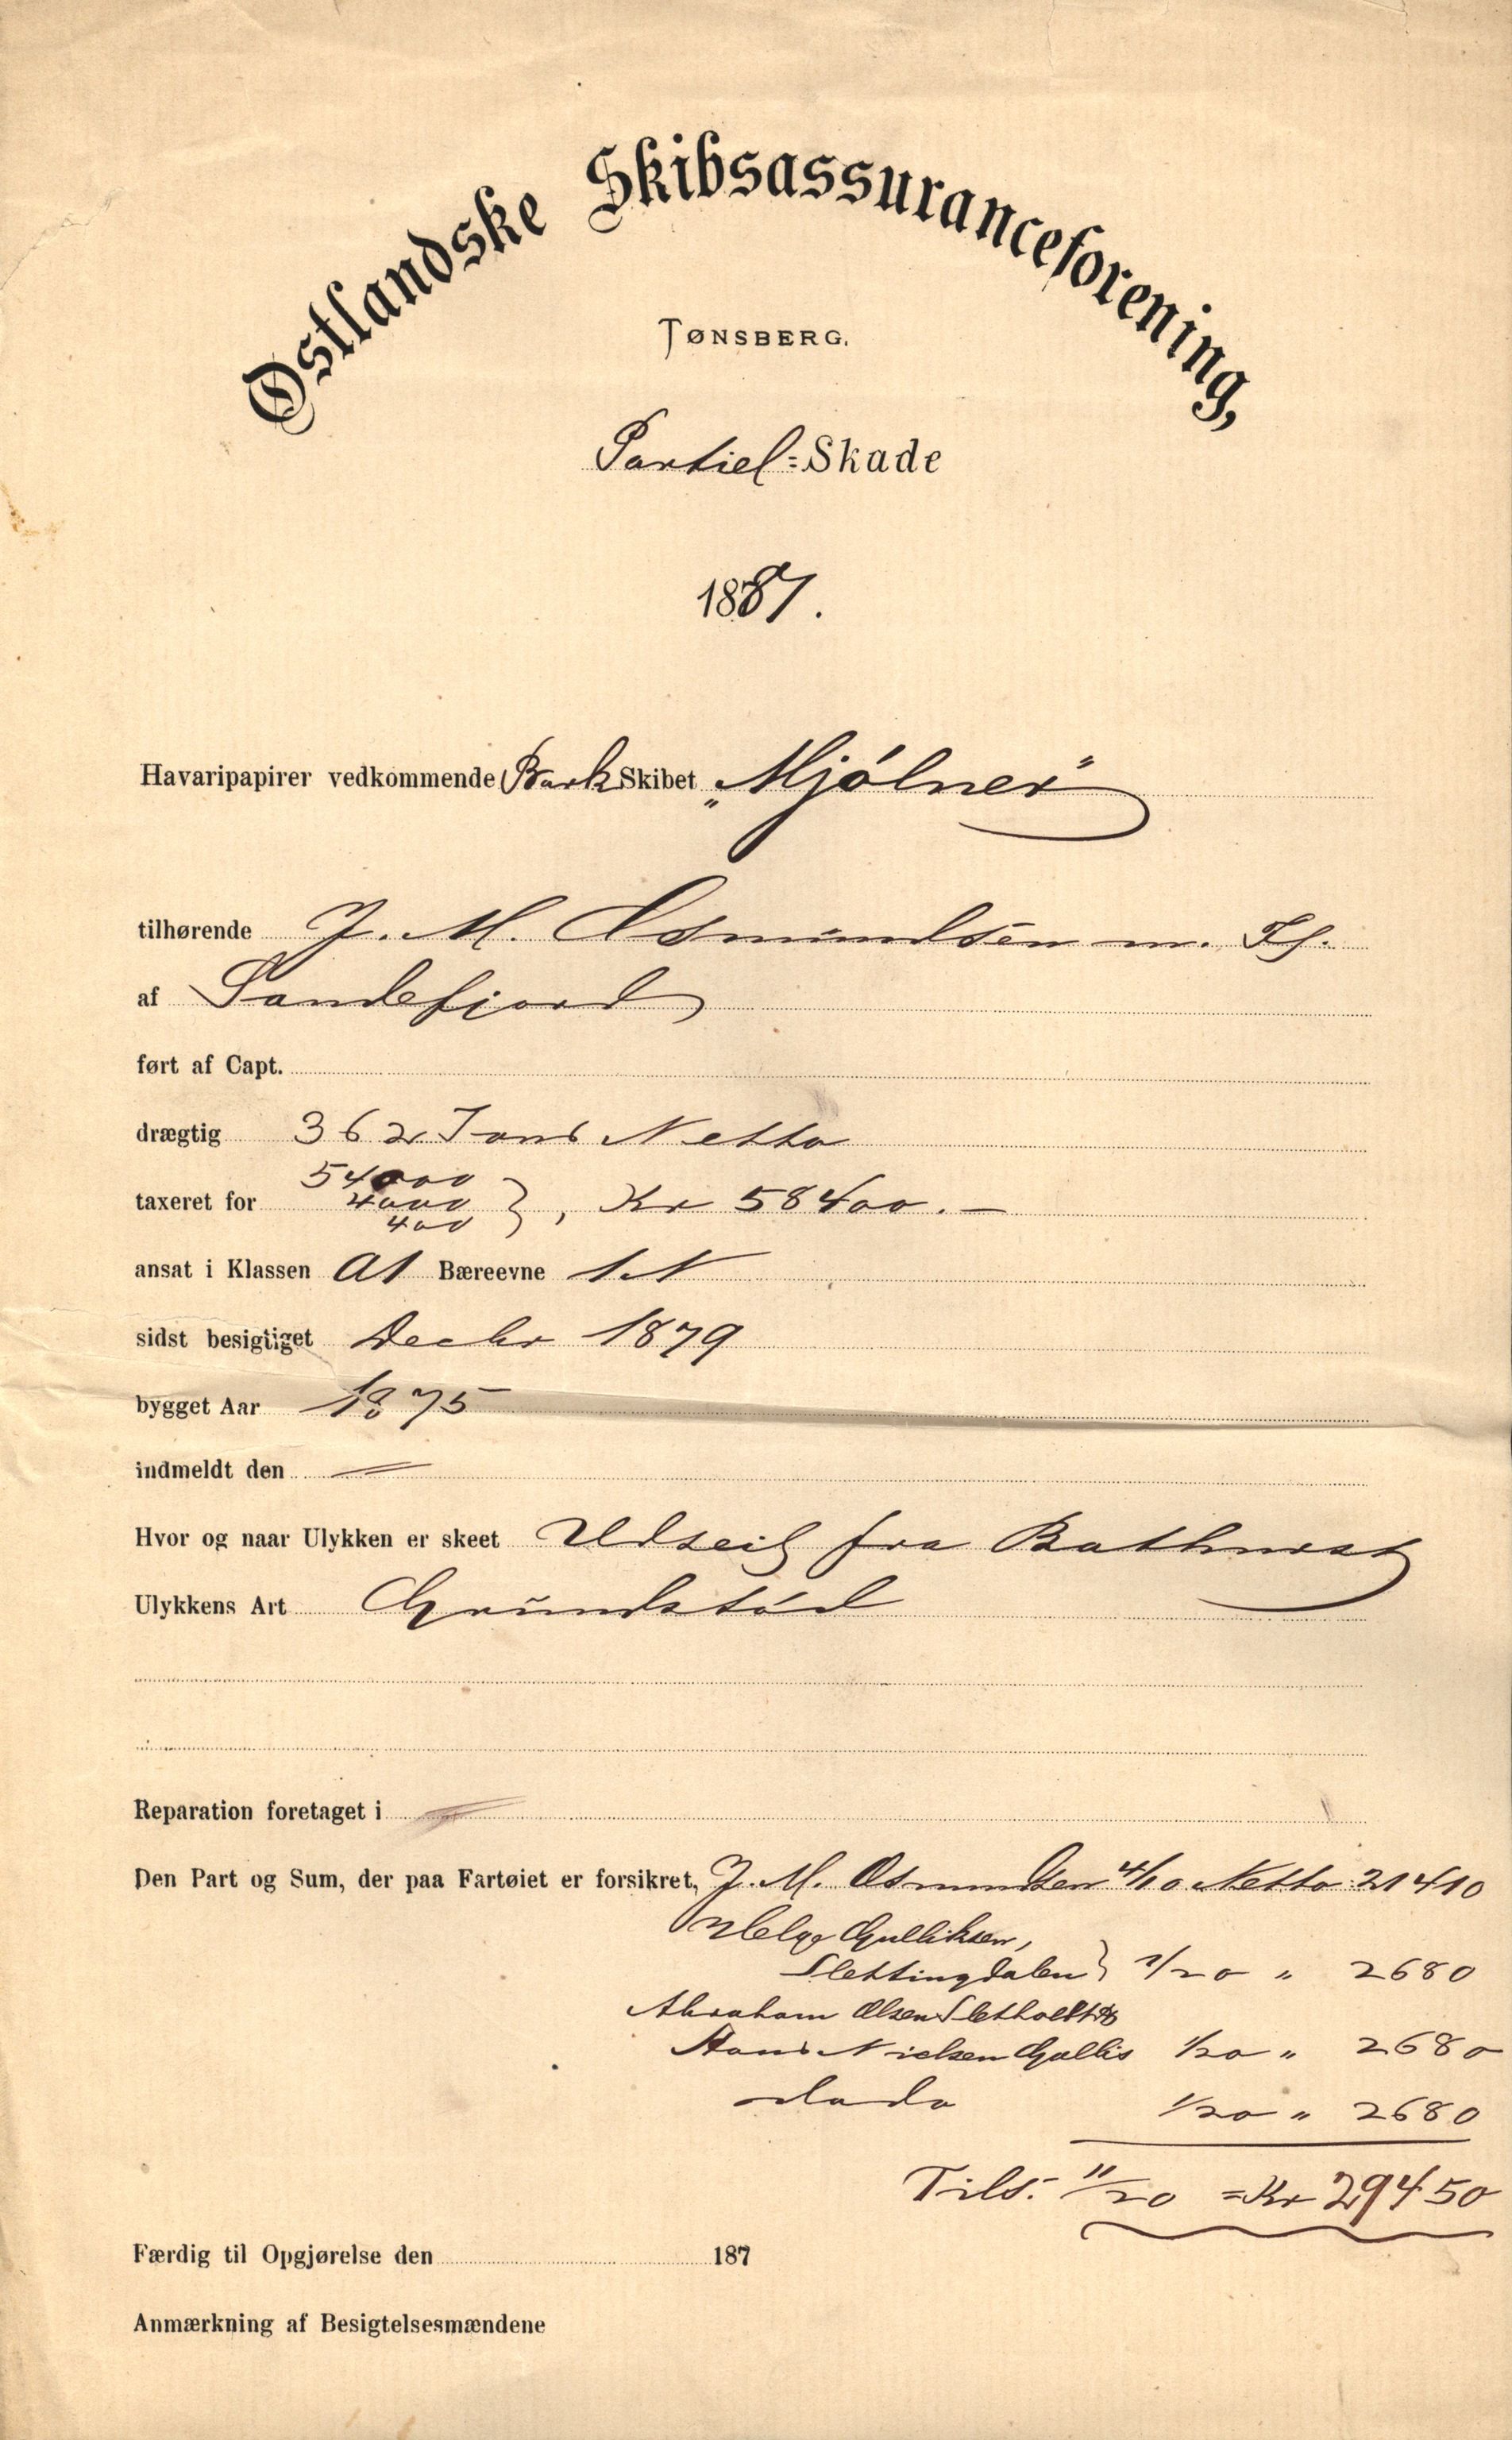 Østlandske Skibsassuranceforening,
TØNSBERG.
Partiel=Skade
1887.
Havaripapirer vedkommende Bark Skibet „Mjölner"
tilhørende J. M. Osmundsen m. Fl.
af Sandefjord
ført af Capt.
drægtig 362 Tons Netto
54000
taxeret for 4000 }, Kr 58400.—
400
ansat i Klassen A1 Bæreevne 1 N
sidst besigtiget Decbr 1879
bygget Aar 1875
indmeldt den
Hvor og naar Ulykken er skeet Udseil fra Bathurst
Ulykkens Art Grundstöd
Reparation foretaget i
Den Part og Sum, der paa Fartøiet er forsikret, J. M. Osmundsen 4/10 Netto 21410
Helge Gulliksen,
Slettingdalen } 1/20 " 2680
Abraham Olsen Sletholt
Hans Nielsen Gallis 1/20 " 2680
dado 1/20 " 2680
Tils. 11/20 = Kr 29450
Færdig til Opgjørelse den 187
Anmærkning af Besigtelsesmændene